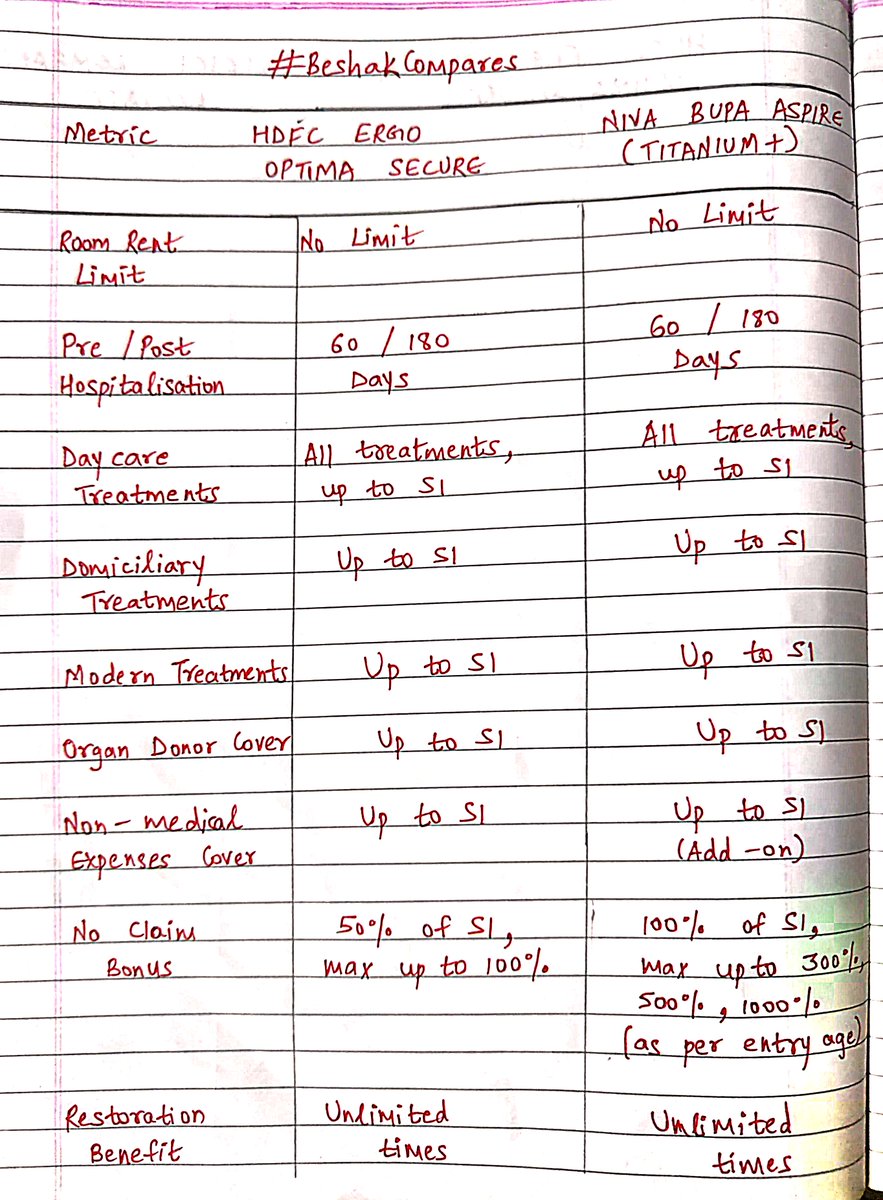 #BeshakCompares
Metric HDFC ERGO NIVA BUPA ASPIRE
OPTIMA SECURE (TITANIUM+)
Room Rent No Limit No Limit
Limit
Pre / Post 60 / 180 60 / 180
Hospitalisation Days Days
Day care All treatments, All treatments,
Treatments up to SI up to SI
Domiciliary Up to SI Up to SI
Treatments
Modern Treatments Up to SI Up to SI
Organ Donor Cover Up to SI Up to SI
Non-medical Up to SI Up to SI
Expenses Cover (Add-on)
No Claim 50% of SI, 100% of SI,
Bonus max up to 100%. max up to 300%,
500%, 1000%
(as per entry age)
Restoration Unlimited Unlimited
Benefit times times